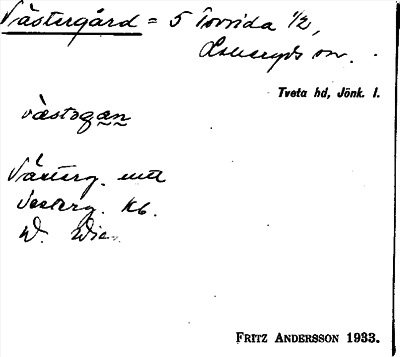 Västergård = 5 Torrida 1/2,
sn.
Tveta hd, Jönk. l.
västəgan
Västerg. utt
Vesterg. Kb.
W.
FRITZ ANDERSSON 1933.